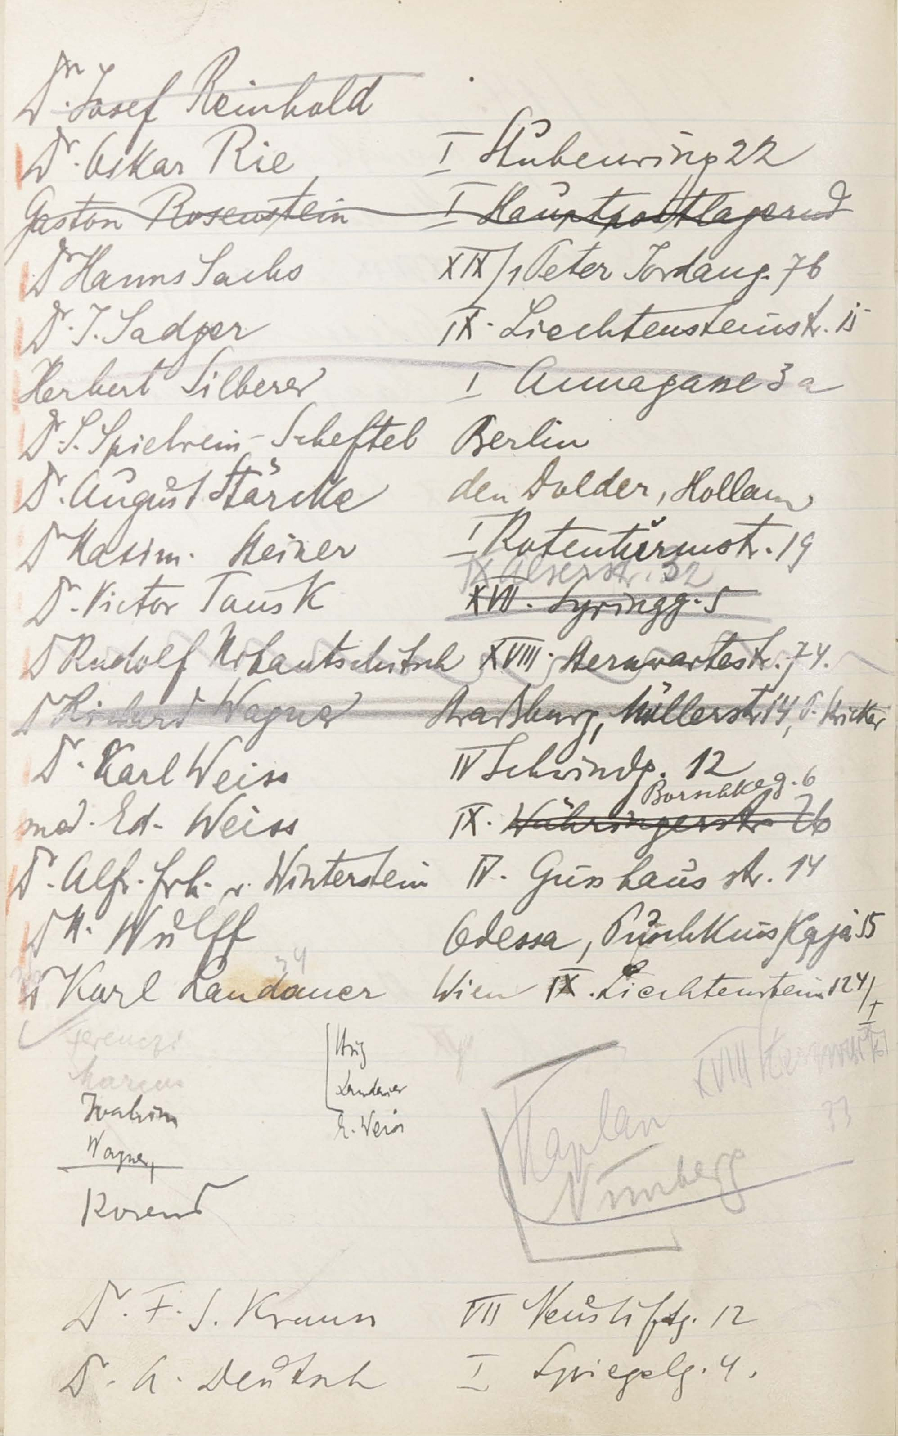 Dr. Josef Reinhold
Dr. Oskar Rie I Stubenring 22
Gaston Rosenstein I Hauptpostlagernd
Dr Hanns Sachs XIX/1 Peter Jordang. 76
Dr. J. Sadger IX. Liechtensteinstr. 15
Herbert Silberer I Annagasse 3a
Dr. S. Spielrein-Scheftel Berlin
Dr. August Stärcke den Dolder, Holland
Dr Maxim. Steiner I Rotenturmstr. 19
IX Alserstr. 32
Dr. Victor Tausk XVII. Syringg. 5
Dr Rudolf Urbantschitsch XVIII. Sternwartestr. 74.
Dr Richard Wagner Straßburg, Müllerstr 14,
Dr. Karl Weiss IV Schwindg. 12
Borschkeg. 6
med. Ed. Weiss IX. Währingerstr. 26
Dr. Alfr. Frh. v. Winterstein IV. Gusshausstr. 14
Dr M. Wulff Odessa, Puschkinskaja 55
34
Dr Karl Landauer Wien IX. Liechtenstein 124/I
Ferenczi
Marcus
Joachim
Wagner,
Landauer
E. Weiss
Kaplan XVIII
33
Dr. F. S. Krauss VII Neustiftg. 12
Dr. A. Deutsch I Spiegelg. 4.